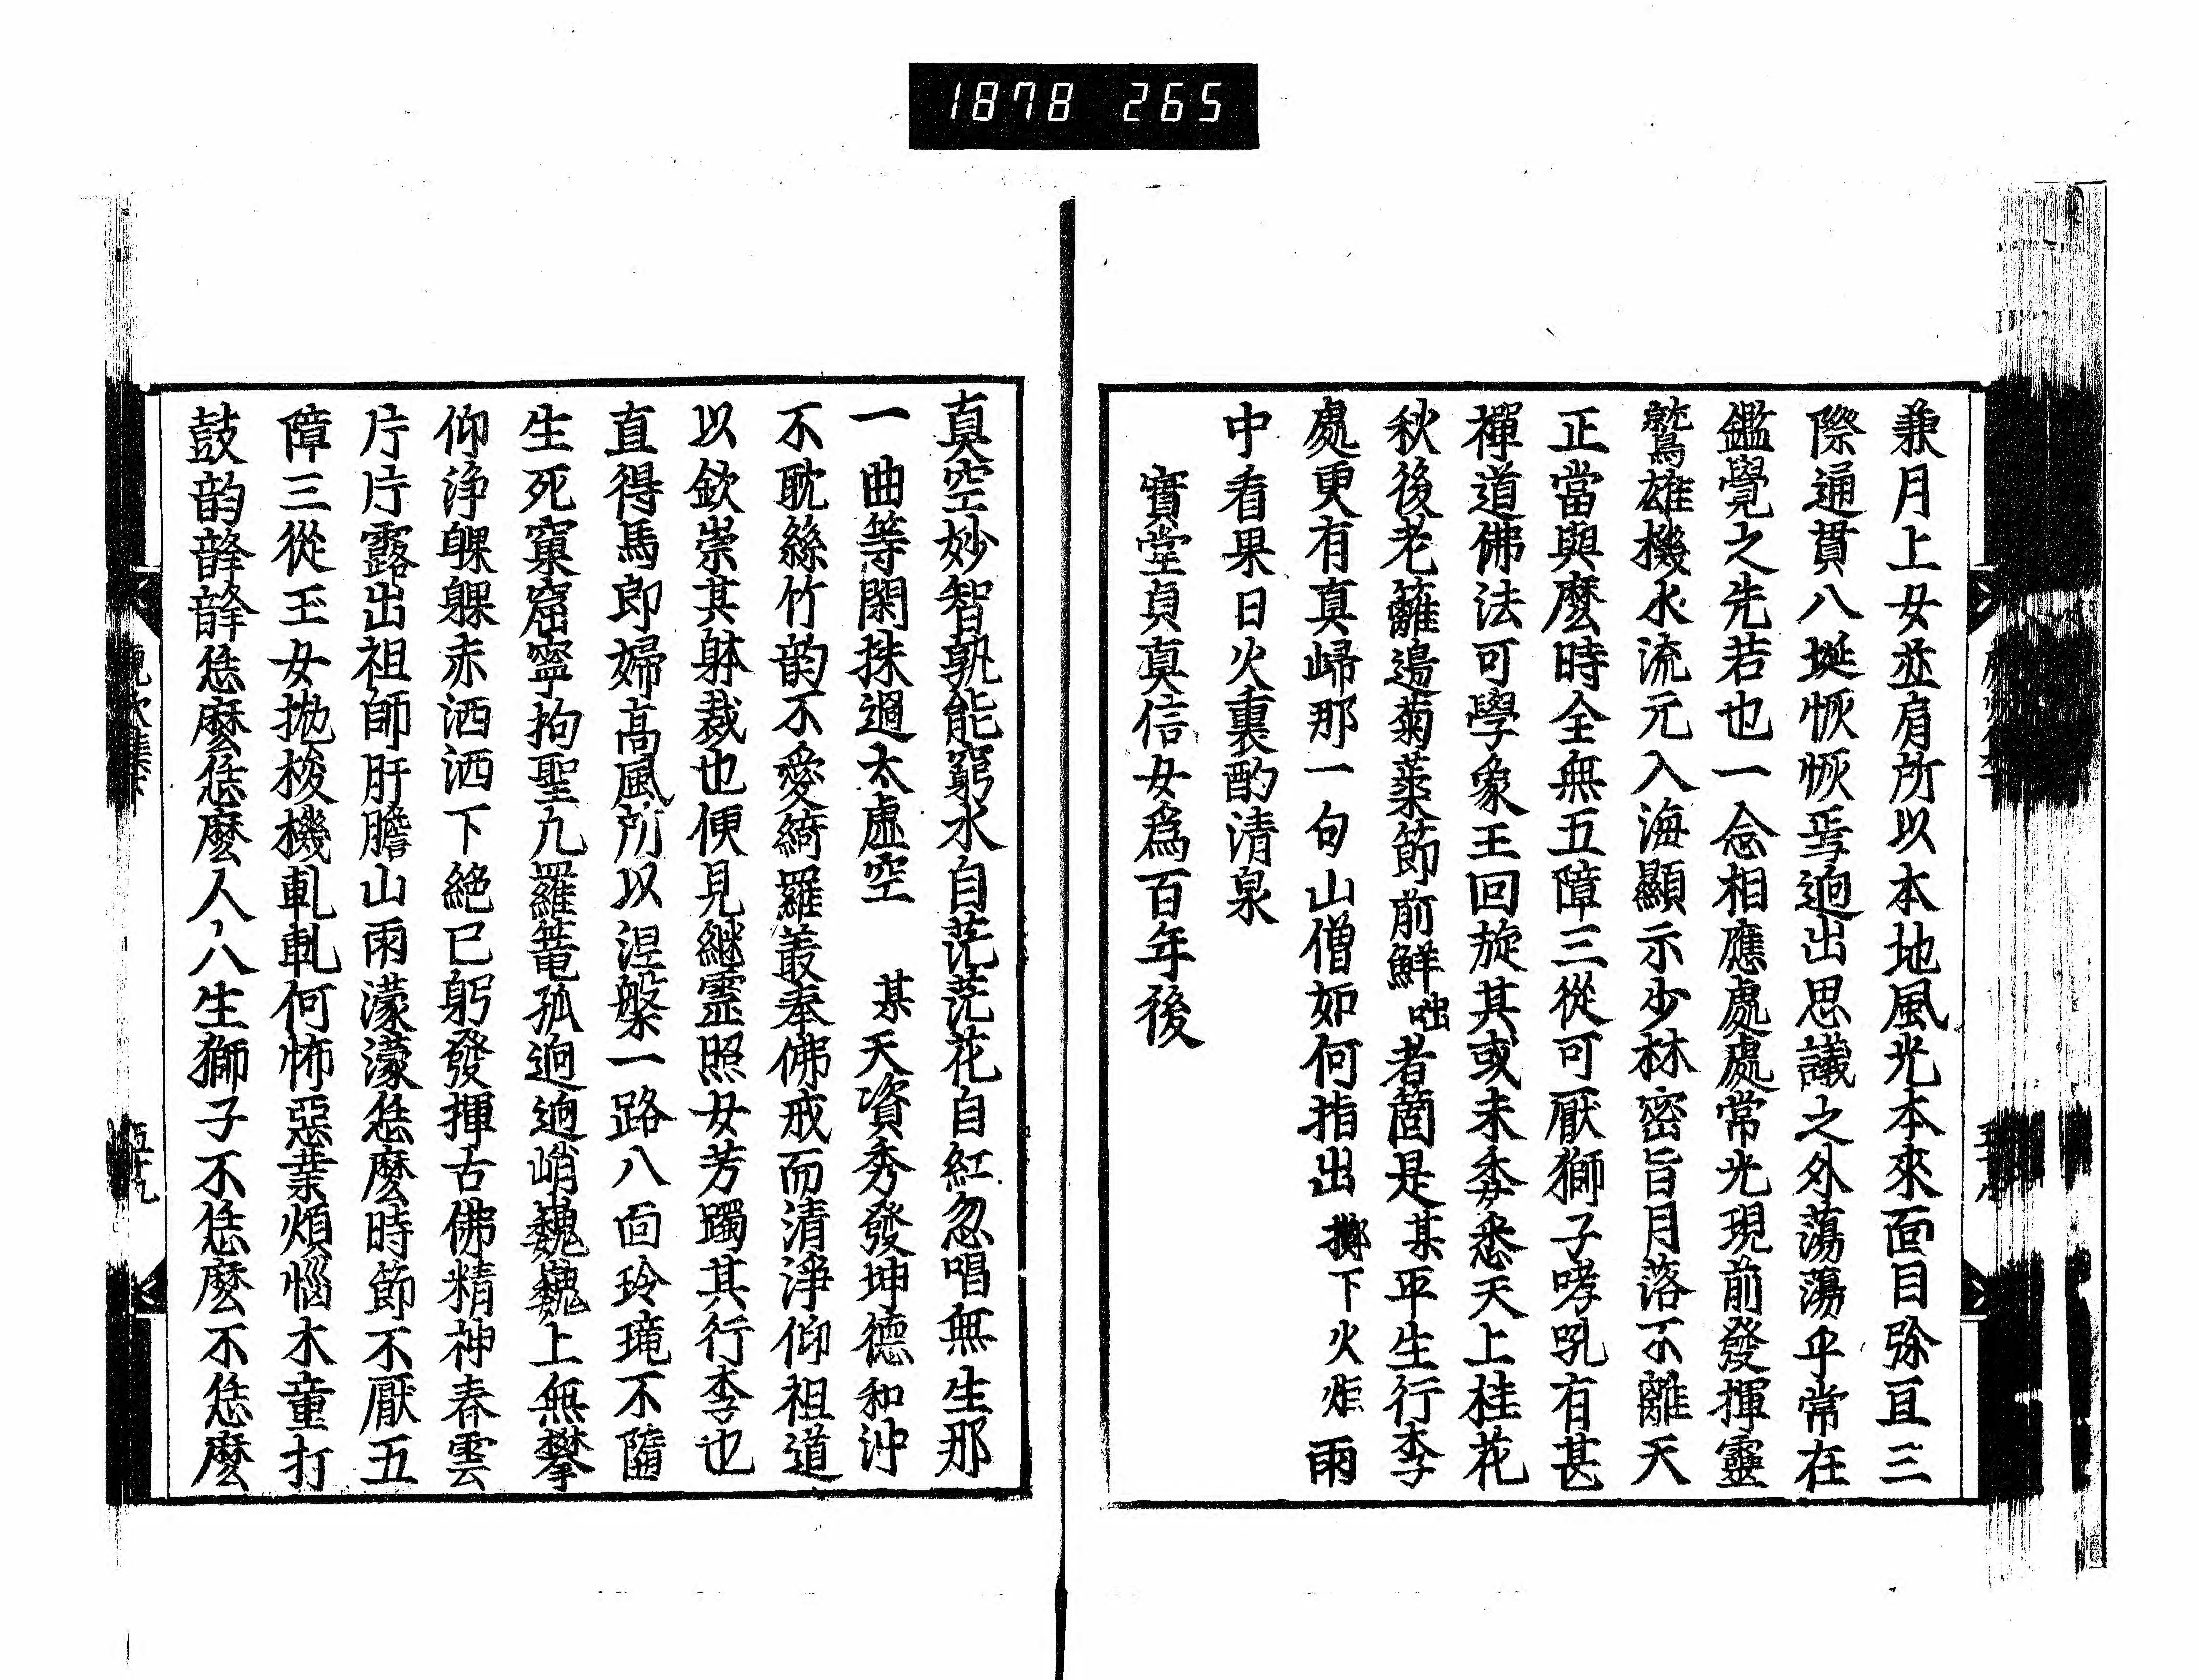 1878 265
兼月上女並肩所以本地風光本來面目弥亘三
際通貫八埏恢恢焉迥出思議之外蕩蕩乎常在
鑑覺之先若也一念相應處處常光現前發揮靈
鷲雄機水流元入海顯示少林密旨月落不離天
正當與麼時全無五障三從可厭獅子哮吼有甚
禪道佛法可學象王回旋其或未委悉天上桂花
秋後老籬邊菊蘂節前鮮咄者箇是某平生行李
處更有真歸那一句山僧如何指出擲下火炬雨
中看果日火裏酌清泉
實堂貞真信女為百年後
真空妙智孰能窮水自茫茫花自紅忽唱無生那
一曲等閑抹過太虛空 某天資秀發坤德和沖
不耽絲竹韵不愛綺羅叢奉佛戒而清淨仰祖道
以欽崇其躰裁也便見継靈照女芳躅其行李也
直得馬郎婦高風所以涅槃一路八面玲瓏不墮
生死窠窟寧拘聖凡羅篭孤迥迥峭巍巍上無攀
仰淨躶躶赤洒洒下絕已躬發揮古佛精神春雲
片片露出祖師肝膽山雨濛濛恁麼時節不厭五
障三從玉女拋梭機軋軋何怖惡業煩惱木童打
鼓韵韸韸恁麼恁麼人人生獅子不恁麼不恁麼